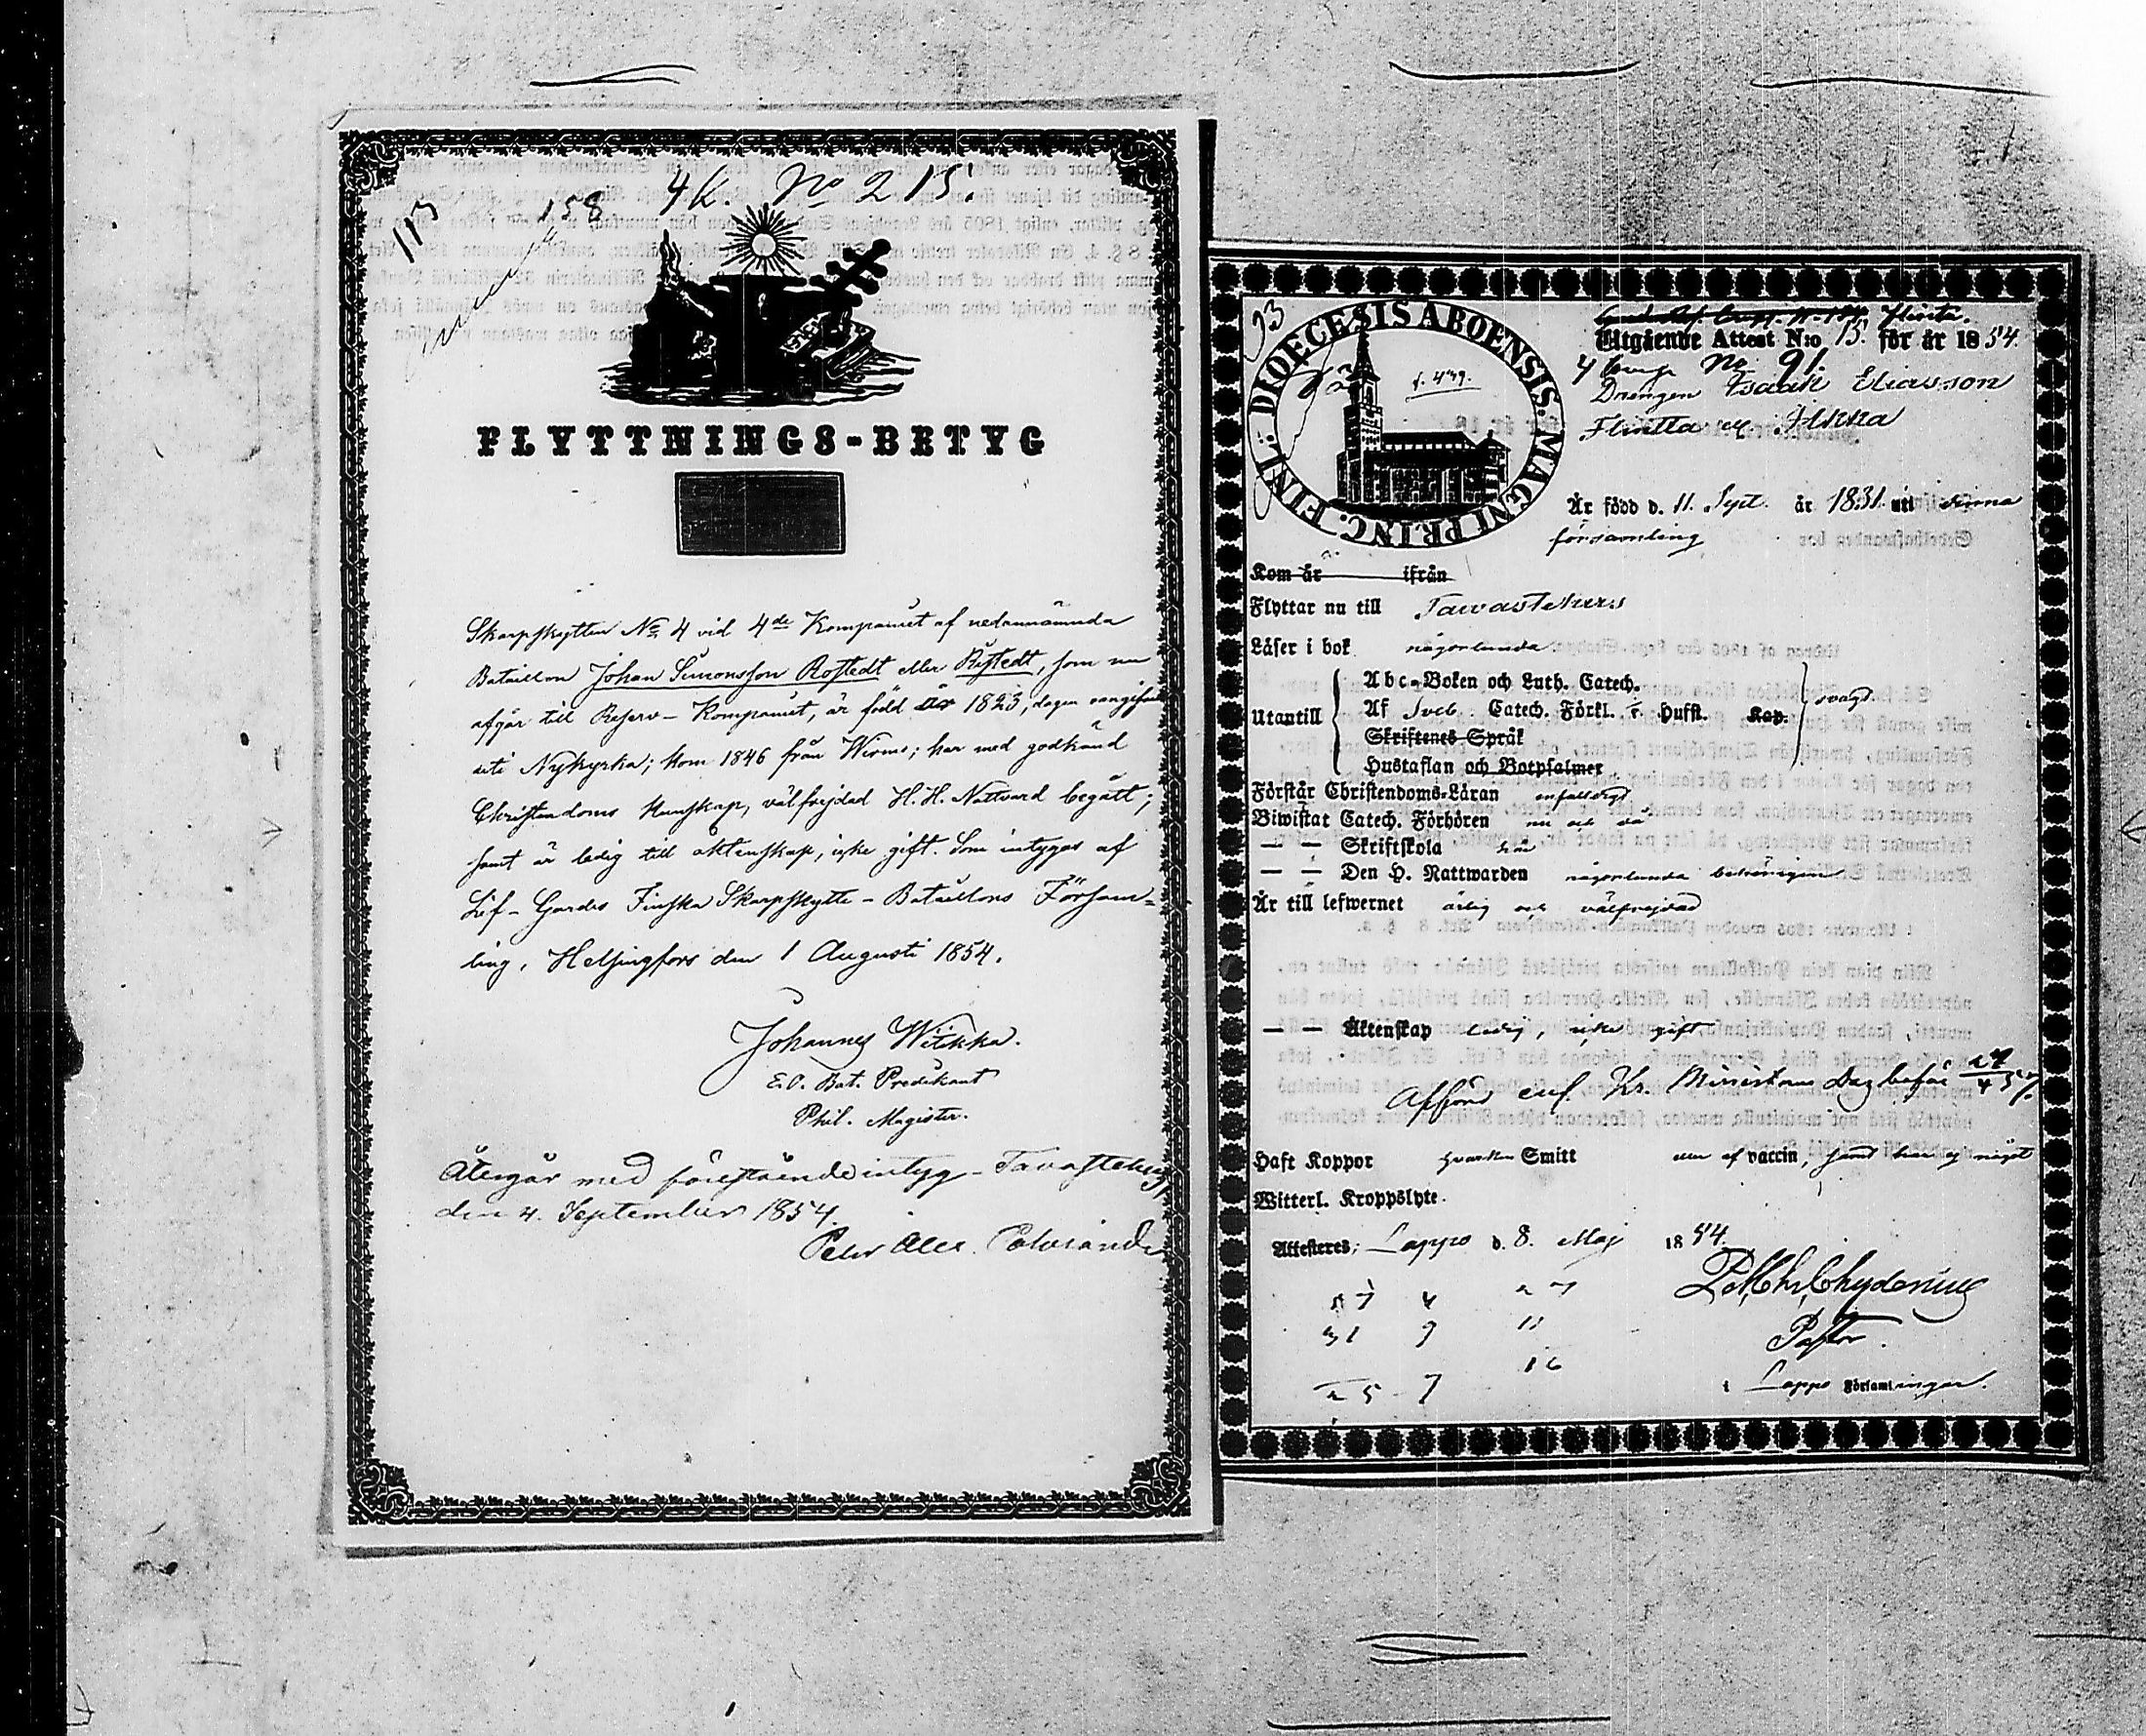 113
158
4 K. No 215.
FLYTTNINGS-BETYG
Skarpskytten No 4 vid 4de Kompaniet af nedannämnda
Bataillon Johan Simonsson Rostedt eller Ristedt, som nu
afgår till Reserv-Kompaniet, är född år 1823, dagen
uti Nykyrka; kom 1846 från Wirmo; har med godkänd
Christendoms kunskap, välfrejdad H. H. Nattvard begått;
samt är ledig till äktenskap, icke gift. Som intygas af
Lif-Gardes Finska Skarpskytte-Bataillons Försam-
ling. Helsingfors den 1 Augusti 1854.
Johannes Wiikka.
E.O. Bat. Predikant
Phil. Magister.
Återgår med förestående intyg – Tavastehus,
den 4. September 1854.
Peter Alex.
93
DIOECESIS ABOENSIS. MAGNI PRINC. FINL:
f. 439.
Utgående Attest N:o 15. för år 1854.
4 Comp. No 91.
Drengen Isaak Eliasson
Flintta
Är född d. 11. Sept. år 1831. uti denna
församling
Kom år ifrån
Flyttar nu till Tawastehus
Läser i bok någorlunda
Utantill
Abc-Boken och Luth. Catech.
Af Sveb. Catech. Förkl. t. Hufst. Kap.
Skriftenes Språk
Hustaflan och Botpsalmer
svagt
Förstår Christendoms-Läran enfaldigt
Biwistat Catech. Förhören nu och då
— — Skriftskola här
— — Den H. Nattwarden någorlunda
Är till lefwernet ärlig och välfrejdad
— — Äktenskap ledig, icke gift
Afförd enl. Kr. Ministerns Dagbefäl 27/4 57.
Haft Koppor hvarken Smitt eller af vaccin, samt har ej något
Witterl. Kroppslyte.
Attesteras; Lappo d. 8. Maj 1854.
27 4 27
31 9 11
25 7 16
Chydenius
Pastor.
i Lappo Församlingar.